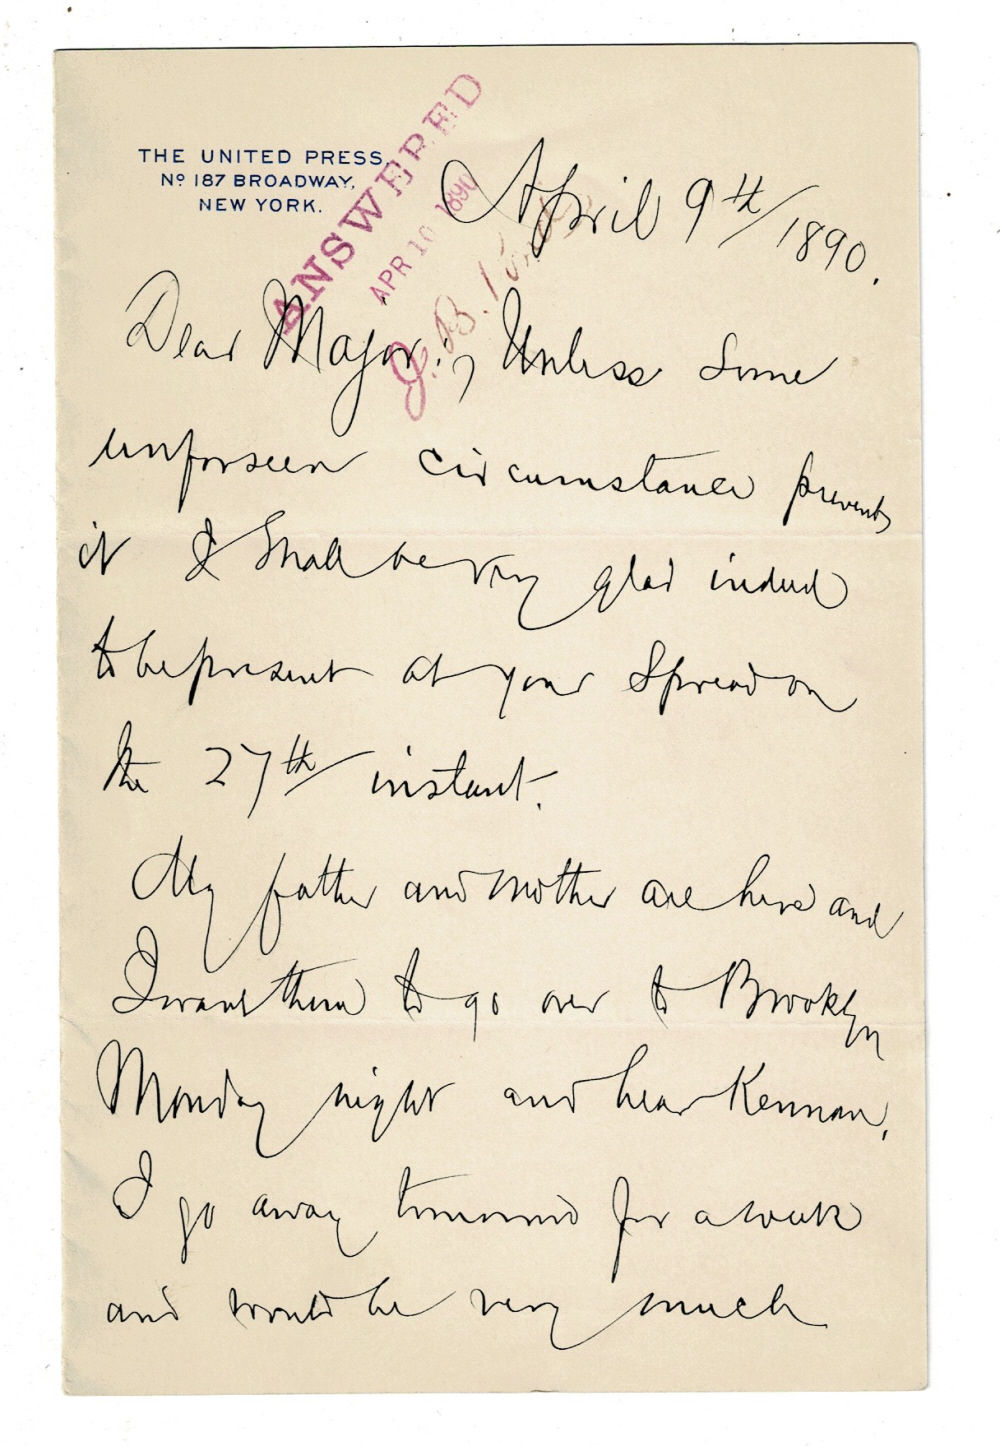 THE UNITED PRESS,
Nº 187 BROADWAY,
NEW YORK.
ANSWERED
APR 10 1890
J. B.
April 9th/1890.
Dear Major:, Unless some
unforseen circumstance prevents
it I shall be very glad indeed
to be present at your spread on
the 27th instant.
My father and mother are here and
I want them to go over to Brooklyn
Monday night and hear Kennan.
I go away tomorrow for a week
and would be very much